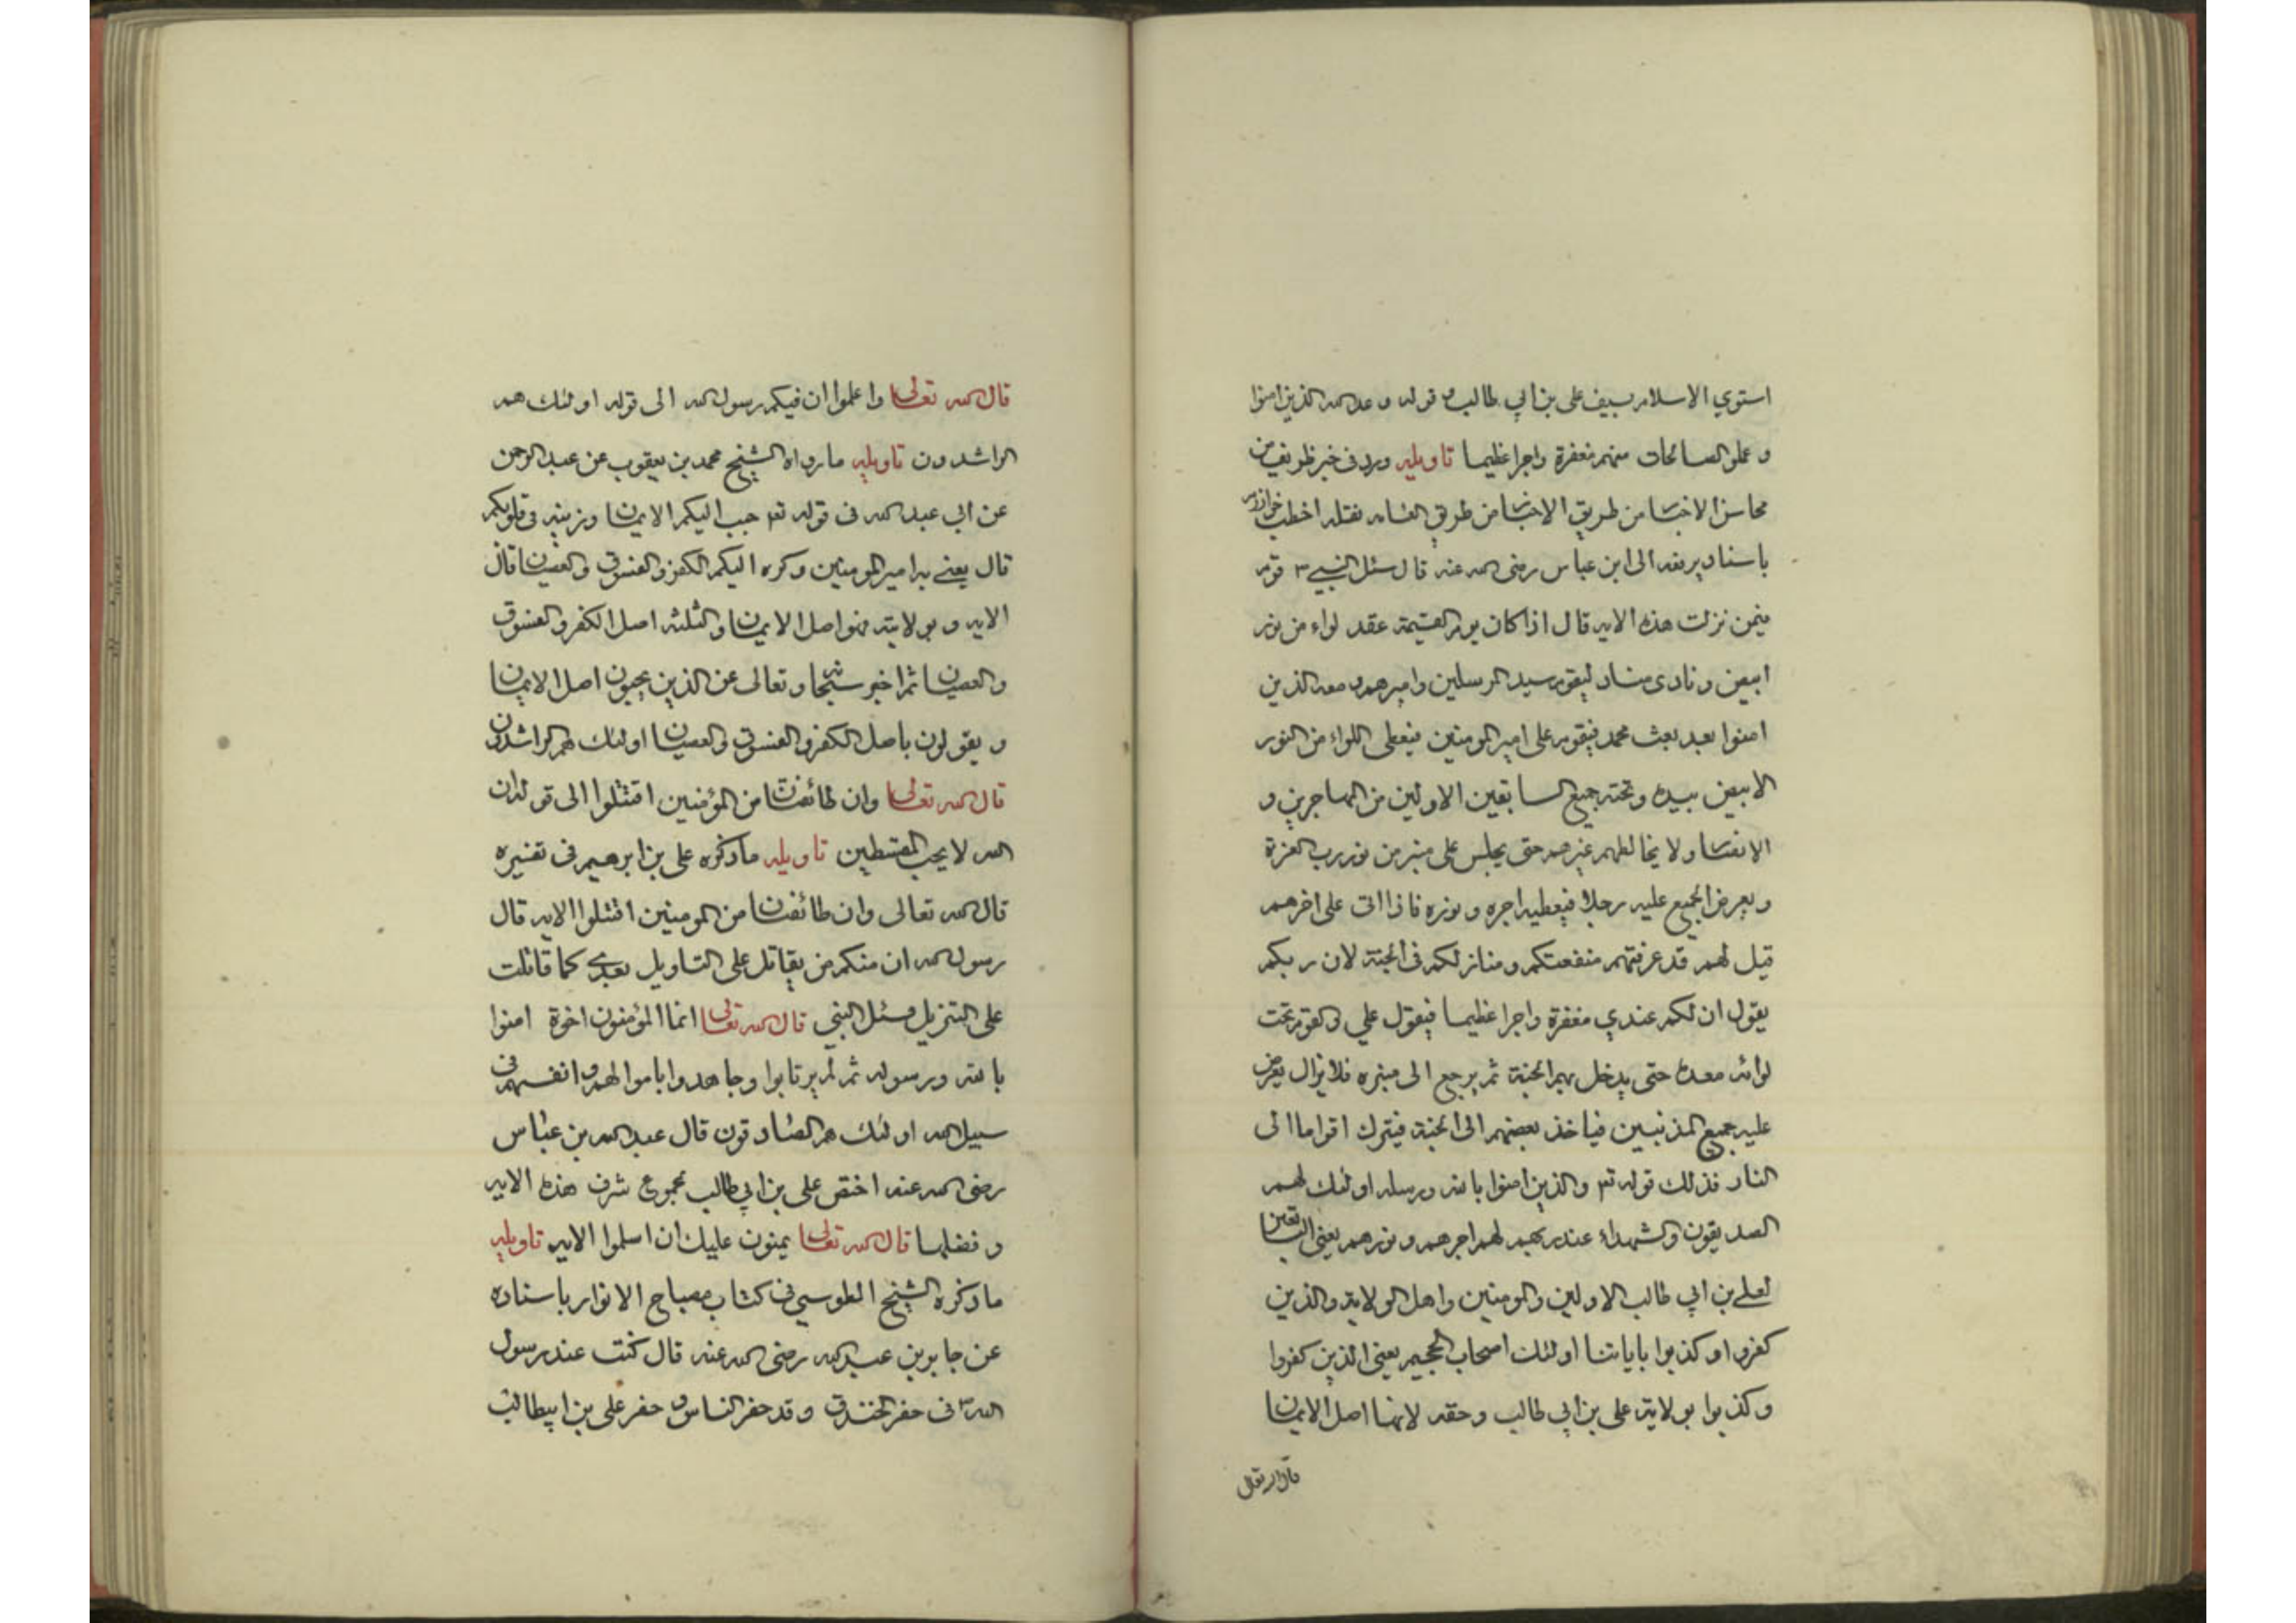 استوي الاسلام بسيف علي بن ابي طالب و قوله وعد الله الذين امنوا
و عملو الصالحات منهم مغفرة واجرا عظيما تاويله ورد في خبر ظريف من
محاسن الاخبا من طريق الاخبا من طريق العامه نقله اخطب خوارزم
باسناد يرفعه الى ابن عباس رضى الله عنه قال سئل النبي ص قوم
فيمن نزلت هذه الايه قال اذا كان يوم القيمة عقد لواء من نور
ابيض و نادى مناد ليقوم سيد المرسلين واميرهم و معه الذين
امنوا بعد بعث محمد فيقوم علي امير المومنين فيعطى اللواء من النور
الابيض بيده و تحته جميع السابقين الاولين من المهاجرين و
الانصا و لا يخالطهم غيرهم حتى يجلس على منبر من نور رب العزة
و يعرض الجميع عليه رجلا فيعطيه اجره و نوره فاذا اتى على اخرهم
قيل لهم قد عرفتم منفعتكم و منازلكم فى الجنة لان ربكم
يقول ان لكم عندي مغفرة واجرا عظيما فيقول علي و القوم تحت
لوائه معه حتى يدخل بهم الجنة ثم يرجع الى منبره فلا يزال يعرض
عليه جميع المذنبين فياخذ بعضهم الى الجنة فيترك اقواما الى
النار فذلك قوله تع والذين امنوا بالله ورسله اولئك لهم
الصديقون والشهداء عند ربهم لهم اجرهم و نورهم يعني السابقين
لعلي بن ابي طالب الاولين والمومنين واهل الولاية والذين
كفروا و كذبوا باياتنا اولئك اصحاب الجحيم يعني الذين كفروا
و كذبوا بولاية علي بن ابي طالب وحقه لانها اصل الايمان
قال الله تعالى
قال الله تعالى واعلموا ان فيكم رسول الله الى قوله اولئك هم
الراشدون تاويله ما رواه الشيخ محمد بن يعقوب عن عبد الرحمن
عن ابي عبد الله فى قوله تع حبب اليكم الايمان وزينه فى قلوبكم
قال يعني به امير المومنين وكره اليكم الكفر والفسوق والعصيان قال
الايه و بولايته فهو اصل الايمان والثلثة اصل الكفر والفسوق
والعصيان ثم اخبر سبحانه و تعالى عن الذين يحبون اصل الايمان
و يقولون باصل الكفر والفسوق والعصيان اولئك هم الراشدون
قال الله تعالى وان طائفتان من المؤمنين اقتتلوا الى قوله ان
الله لا يحب المقسطين تاويله ما ذكره علي بن ابرهيم فى تفسيره
قال الله تعالى وان طائفتان من المومنين اقتتلوا الايه قال
رسول الله ان منكم من يقاتل على التاويل بعدي كما قاتلت
على التنزيل فسئل النبي قال الله تعالى انما المؤمنون اخوة امنوا
بالله ورسوله ثم لم يرتابوا وجاهدوا باموالهم و انفسهم فى
سبيل الله اولئك هم الصادقون قال عبد الله بن عباس
رضى الله عنه اختص علي بن ابي طالب بمجموع شرف هذه الايه
و فضلها قال الله تعالى يمنون عليك ان اسلموا الايه تاويله
ما ذكره الشيخ الطوسي فى كتاب مصباح الانوار باسناده
عن جابر بن عبد الله رضى الله عنه قال كنت عند رسول
الله ص فى حفر الخندق و قد حفر الناس و حفر علي بن ابيطالب